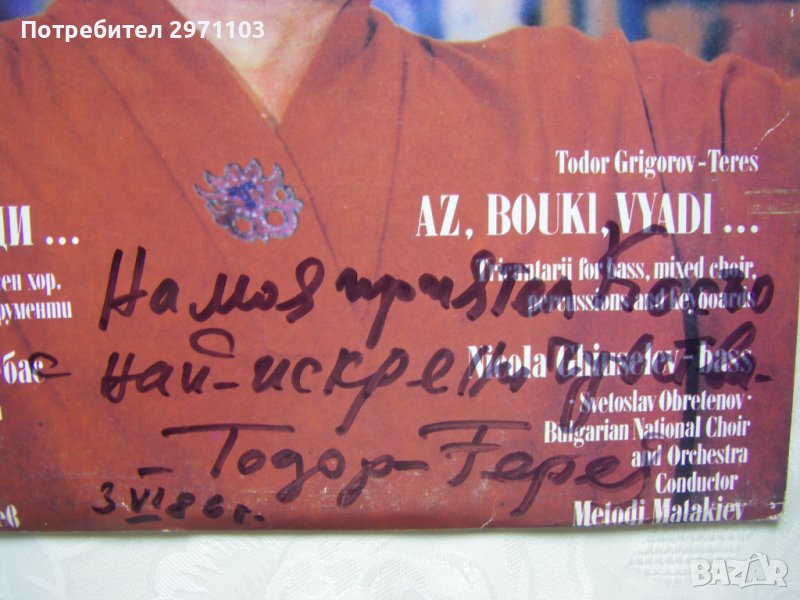 Потребител 2971103
Todor Grigorov-Teres
ДИ ...
AZ, BOUKI, VYADI ...
сен хор,
рументи
for bass, mixed choir,
percussions and keyboards
На моя приятел Косьо
с най-искрени чувства.
-бас
Nicola Ghiuselev-bass
Svetoslav Obretenov
Bulgarian National Choir
and Orchestra
Conductor
Metodi Matakiev
ев
- Тодор-Терес
3 VI 86 г.
BAZAR